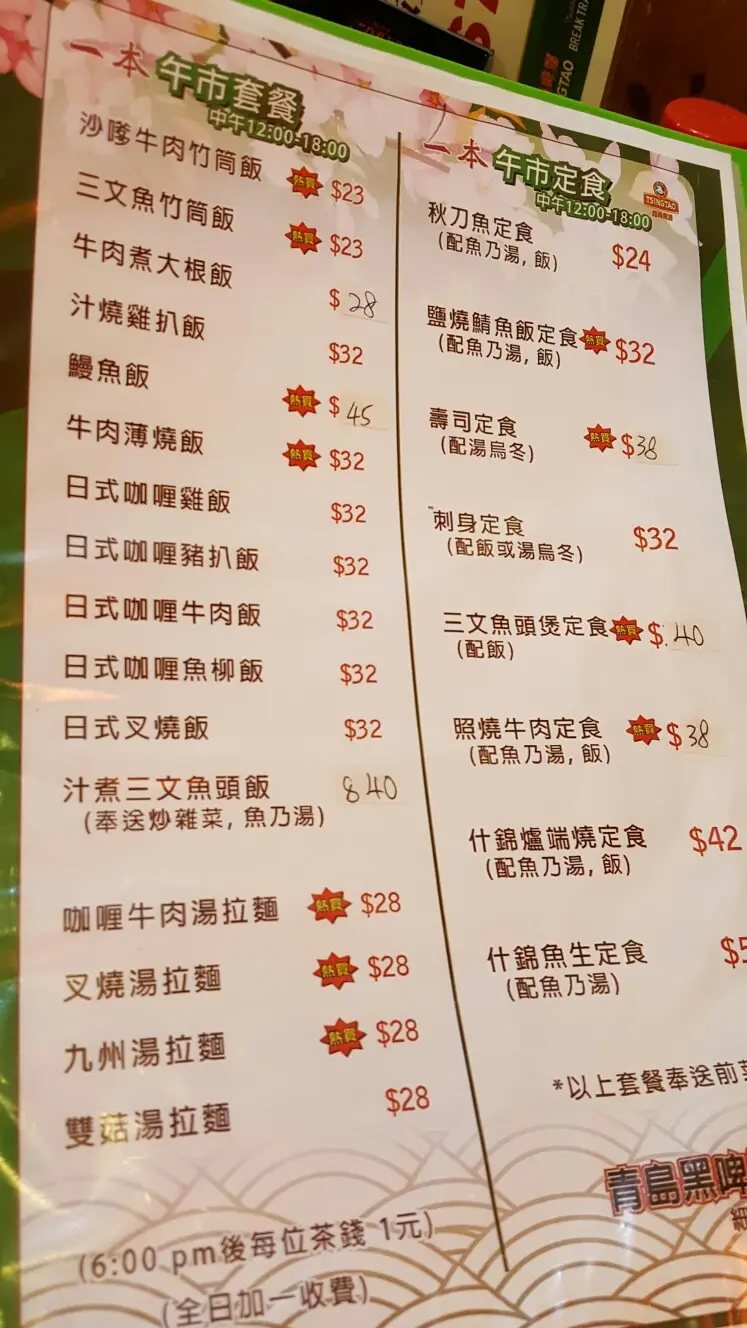 一本 午市套餐
中午12:00-18:00
沙嗲牛肉竹筒飯 熱買 $23
三文魚竹筒飯 熱買 $23
牛肉煮大根飯 $28
汁燒雞扒飯 $32
鰻魚飯 熱買 $45
牛肉薄燒飯 熱買 $32
日式咖喱雞飯 $32
日式咖喱豬扒飯 $32
日式咖喱牛肉飯 $32
日式咖喱魚柳飯 $32
日式叉燒飯 $32
汁煮三文魚頭飯 840
(奉送炒雜菜, 魚乃湯)
咖喱牛肉湯拉麵 熱買 $28
叉燒湯拉麵 熱買 $28
九州湯拉麵 熱買 $28
雙菇湯拉麵 $28
(6:00 pm後每位茶錢 1元)
(全日加一收費)
一本 午市定食
中午12:00-18:00
TSINGTAO
秋刀魚定食 $24
(配魚乃湯, 飯)
鹽燒鯖魚飯定食 熱買 $32
(配魚乃湯, 飯)
壽司定食 熱買 $38
(配湯烏冬)
刺身定食 $32
(配飯或湯烏冬)
三文魚頭煲定食 熱買 $40
(配飯)
照燒牛肉定食 熱買 $38
(配魚乃湯, 飯)
什錦爐端燒定食 $42
(配魚乃湯, 飯)
什錦魚生定食 $5
(配魚乃湯)
*以上套餐奉送前
青島黑啤